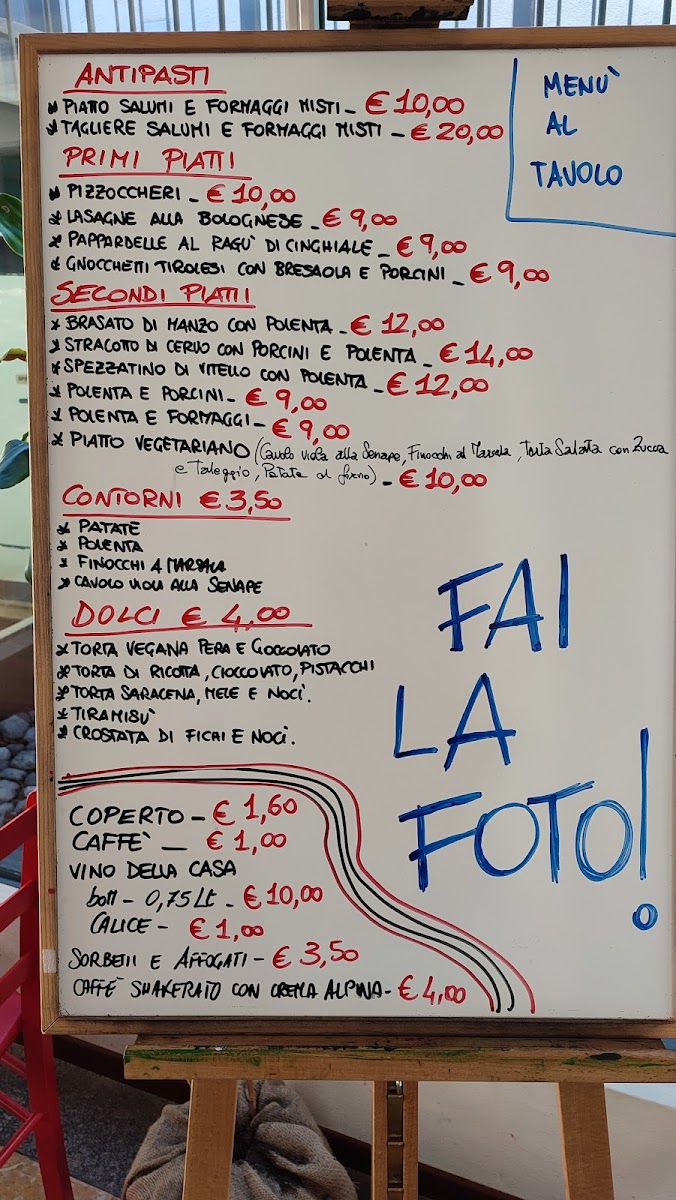 ANTIPASTI
PIATTO SALUMI E FORMAGGI MISTI - € 10,00
TAGLIERE SALUMI E FORMAGGI MISTI - € 20,00
MENÙ
AL
TAVOLO
PRIMI PIATTI
PIZZOCCHERI - € 10,00
LASAGNE ALLA BOLOGNESE - € 9,00
PAPPARDELLE AL RAGÙ DI CINGHIALE - € 9,00
GNOCCHETTI TIROLESI CON BRESAOLA E PORCINI - € 9,00
SECONDI PIATTI
BRASATO DI MANZO CON POLENTA - € 12,00
STRACOTTO DI CERVO CON PORCINI E POLENTA - € 14,00
SPEZZATINO DI VITELLO CON POLENTA - € 12,00
POLENTA E PORCINI - € 9,00
POLENTA E FORMAGGI - € 9,00
PIATTO VEGETARIANO (Cavolo viola alla Senape, Finocchi al Marsala, Torta Salata con Zucca
e Taleggio, Patate al forno) - € 10,00
CONTORNI € 3,50
PATATE
POLENTA
FINOCCHI A MARSALA
CAVOLO VIOLA ALLA SENAPE
DOLCI € 4,00
TORTA VEGANA PERA E CIOCCOLATO
TORTA DI RICOTTA, CIOCCOLATO, PISTACCHI
TORTA SARACENA, MELE E NOCI.
TIRAMISÙ
CROSTATA DI FICHI E NOCI.
FAI
LA
FOTO!
COPERTO - € 1,60
CAFFÈ - € 1,00
VINO DELLA CASA
bott - 0,75 Lt - € 10,00
CALICE - € 1,00
SORBETTI E AFFOGATI - € 3,50
CAFFÈ SHAKERATO CON CREMA ALPINA - € 4,00